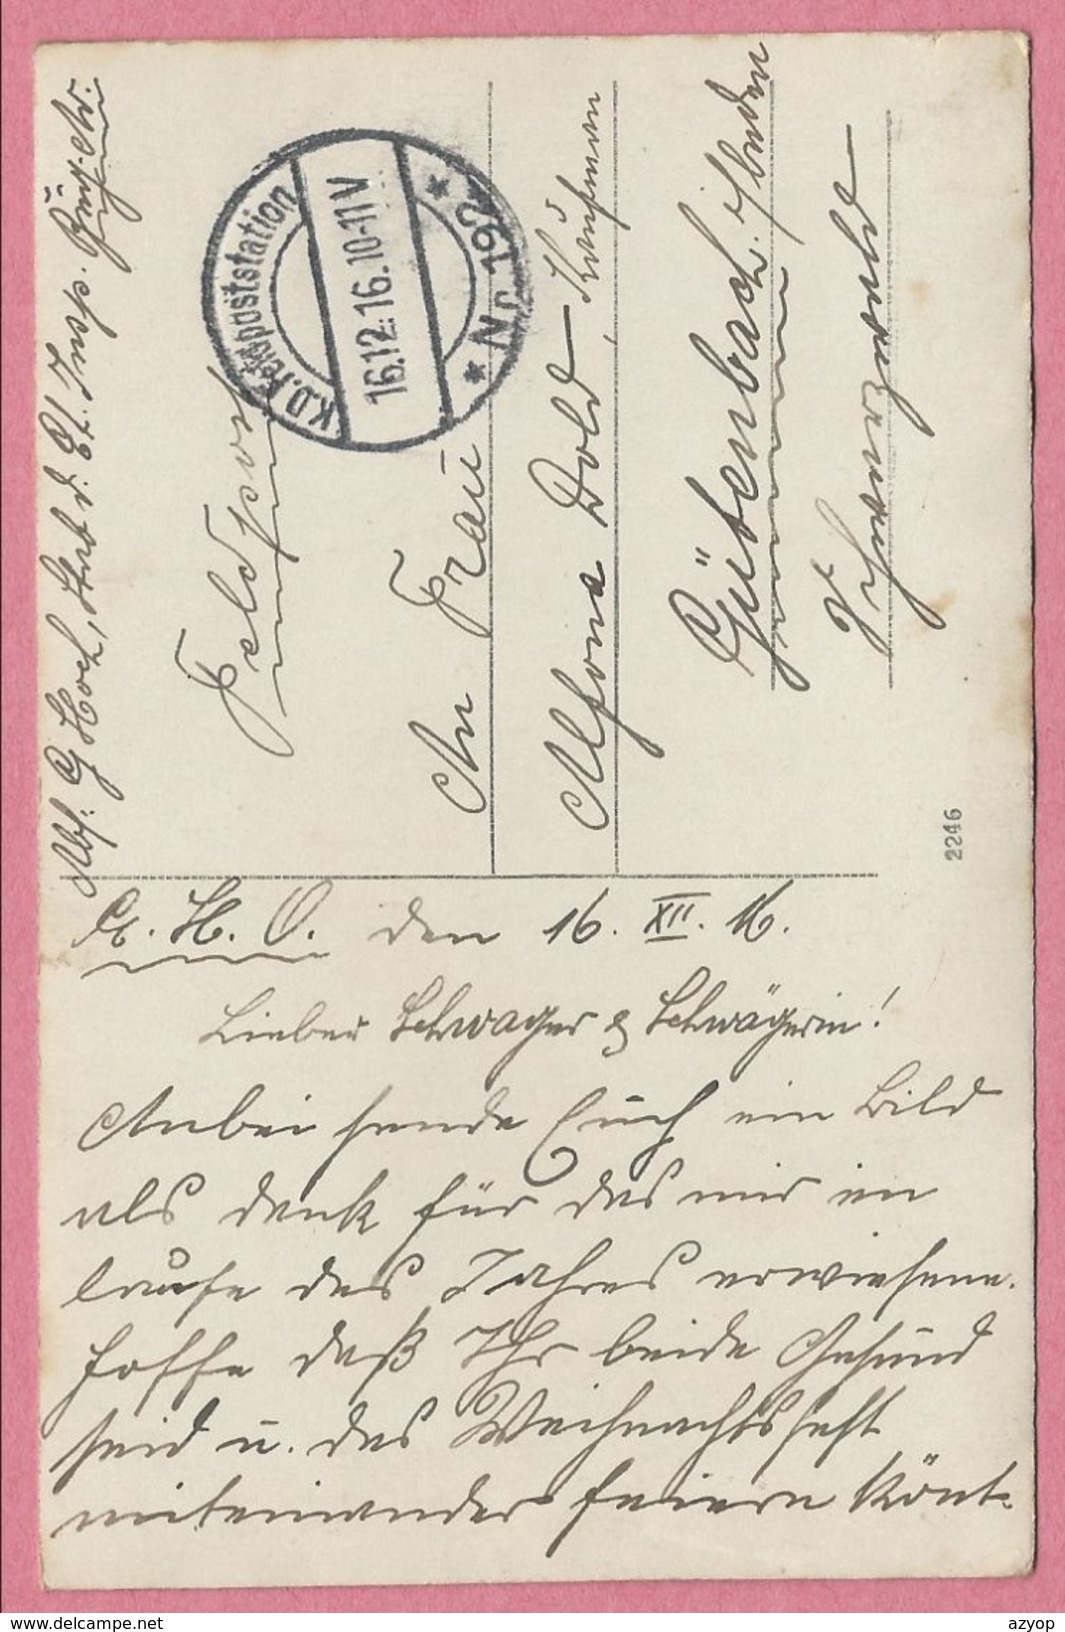 Abs: G Hoch, Stab d. Et. Insp.
Feldpost
K.D. Feldpoststation
16.12.16. 10-11 V
* Nr. 192 *
An Frau
Alfons Dold, Kaufman
Gütenbach i/Baden
Schwarzwald
2246
Gr. H. Q. den 16. XII. 16.
Lieber Schwager & Schwägerin!
Anbei sende Euch ein Bild
als dank für das mir im
laufe des Jahres erwiesene.
hoffe daß Ihr beide Gesund
seid u. das Weihnachtsfest
miteinander feiern könt.
www.delcampe.net
azyop